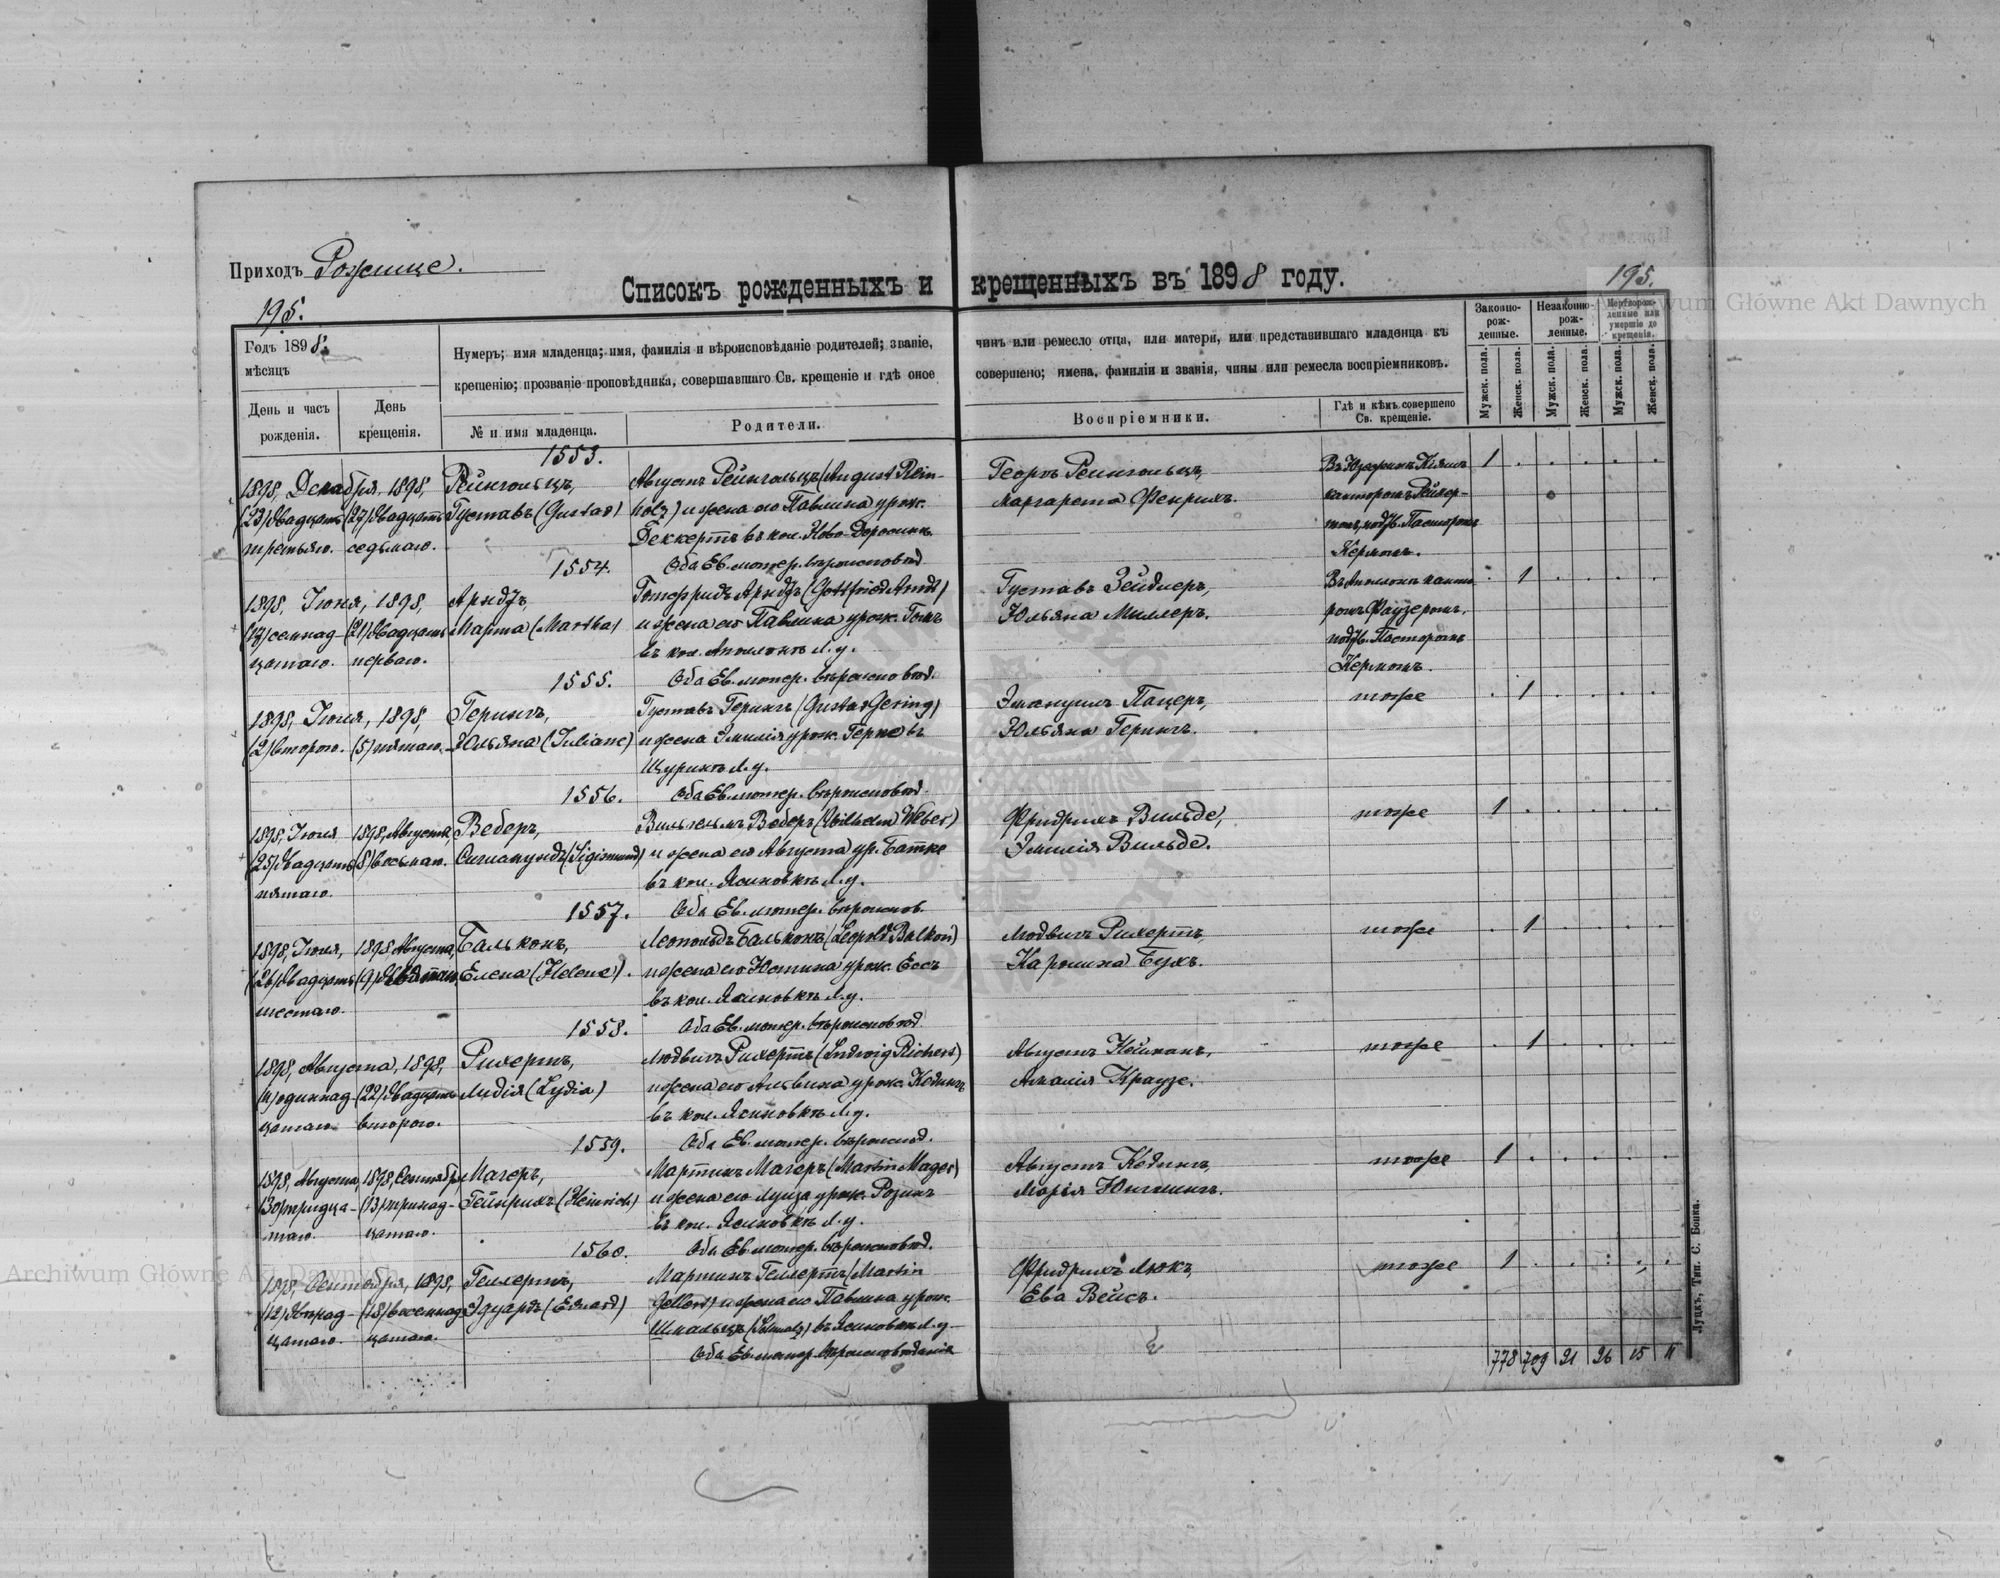 Приходъ Рожище.
195.
195.
Списокъ рожденныхъ и крещенныхъ въ 1898 году.
Archiwum Główne Akt Dawnych
Годъ 1898.
мѣсяцъ
День и часъ рожденія.
День крещенія.
Нумеръ; имя младенца; имя, фамилія и вѣроисповѣданіе родителей; званіе, чинъ или ремесло отца, или матери, или представившаго младенца къ
крещенію; прозваніе проповѣдника, совершавшаго Св. крещеніе и гдѣ оное совершено; имена, фамиліи и званія, чины или ремесла воспріемниковъ.
№ и имя младенца.
Родители.
Воспріемники.
Гдѣ и кѣмъ совершено Св. крещеніе.
Законно-рож-денные.
Незаконно-рож-денные.
Мертворож-денные или умершіе до крещенія.
Мужск. пола.
Женск. пола.
Мужск. пола.
Женск. пола.
Мужск. пола.
Женск. пола.
1553.
1898, Декабря, 1898,
(23) двадцать (27) двадцать
третьяго. седьмаго.
Рейнгольцъ,
Густавъ (Gustav)
Августъ Рейнгольцъ (August Rein-
holz) и жена его Павлина урож.
Деккертъ въ кол. Ново-Доросинъ
Оба Ев. лютер. вѣроисповѣд.
Георгъ Рейнгольцъ,
Маргарета Фенрихъ.
кантором Рейхер-
томъ, подтв. Пасторомъ
Керномъ.
1
1554.
1898, Іюня, 1898,
(17) семнад- (21) двадцать
цатаго. перваго.
Арндтъ,
Марта (Martha)
Готфридъ Арндтъ (Gottfried Arndt)
и жена его Павлина урож. Гонъ
въ кол. Аполонкѣ Л. у.
Оба Ев. лютер. вѣроисповѣд.
Густавъ Зейдлеръ,
Юльяна Миллеръ.
Въ Аполонкѣ канто-
ромъ Фаузеромъ,
подтв. Пасторомъ
Керномъ.
1
1555.
1898, Іюня, 1898,
(2) второго. (5) пятаго.
Герингъ,
Юльяна (Juliane)
Густавъ Герингъ (Gustav Gering)
и жена Эмилія урож. Герке въ
Щуринѣ Л. у.
Оба Ев. лютер. вѣроисповѣд.
Эмануилъ Пацеръ,
Юльяна Герингъ.
тоже
1
1556.
1898, Іюля 1898, Августа,
(25) двадцать (8) восьмаго.
пятаго.
Веберъ,
Сигизмундъ (Sigismund)
Вильгельмъ Веберъ (Wilhelm Weber)
и жена его Августа ур. Батке
въ кол. Ясиновкѣ Л. у.
Оба Ев. лютер. вѣроиспов.
Фридрихъ Вильде,
Эмилія Вильде.
тоже
1
1557.
1898, Іюля, 1898, Августа,
(26) двадцать (9) девятаго,
шестаго.
Бальконъ,
Елена (Helene).
Леопольдъ Бальконъ (Leopold Balkon)
и жена его Юстина урож. Ессъ
въ кол. Ясиновкѣ Л. у.
Оба Ев. лютер. вѣроисповѣд.
Людвигъ Рихертъ,
Каролина Бухъ.
тоже
1
1558.
1898, Августа, 1898,
(11) одиннад- (22) двадцать
цатаго второго.
Рихертъ,
Лидія (Lydia)
Людвигъ Рихертъ (Ludwig Richert)
и жена его Альвина урож. Кедингъ
въ кол. Ясиновкѣ Л. у.
Оба Ев. лютер. вѣроиспов.
Августъ Нейманъ,
Амалія Краузе.
тоже
1
1559.
1898, Августа, 1898, Сентября,
(30) тридца- (13) тринад-
таго. цатаго.
Магеръ,
Гейнрихъ (Heinrich)
Мартинъ Магеръ (Martin Mager)
и жена его Луиза урож. Розинъ
въ кол. Ясиновкѣ Л. у.
Оба Ев. лютер. вѣроисповѣд.
Августъ Кедингъ,
Марія Юнгшинъ.
тоже
1
1560.
1898, Сентября, 1898,
(12) двѣнад- (18) восемнад-
цатаго. цатаго.
Геллертъ,
Эдуардъ (Eduard)
Мартинъ Геллертъ (Martin
Gellert) и жена его Павлина урож.
Шмальцъ (Schmalz) въ Ясиновкѣ Л. у.
Оба Ев. лютер. вѣроисповѣданія
Фридрихъ Люкъ,
Ева Вейсъ.
тоже
1
778 709 21 26 15 11
Луцкъ, Тип. С. Бонка.
Archiwum Główne Akt Dawnych